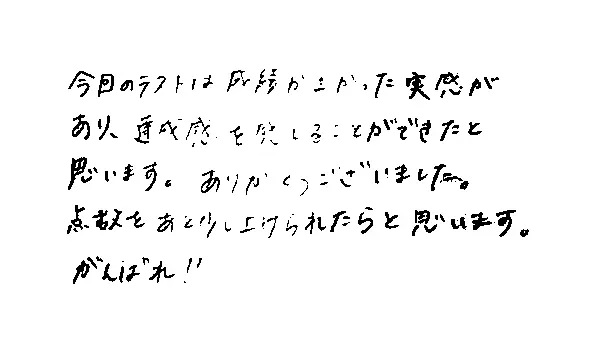 今回のテストは成績が上がった実感が
あり、達成感を感じることができたと
思います。ありがとうございました。
点数をあと少し上げられたらと思います。
がんばれ!!